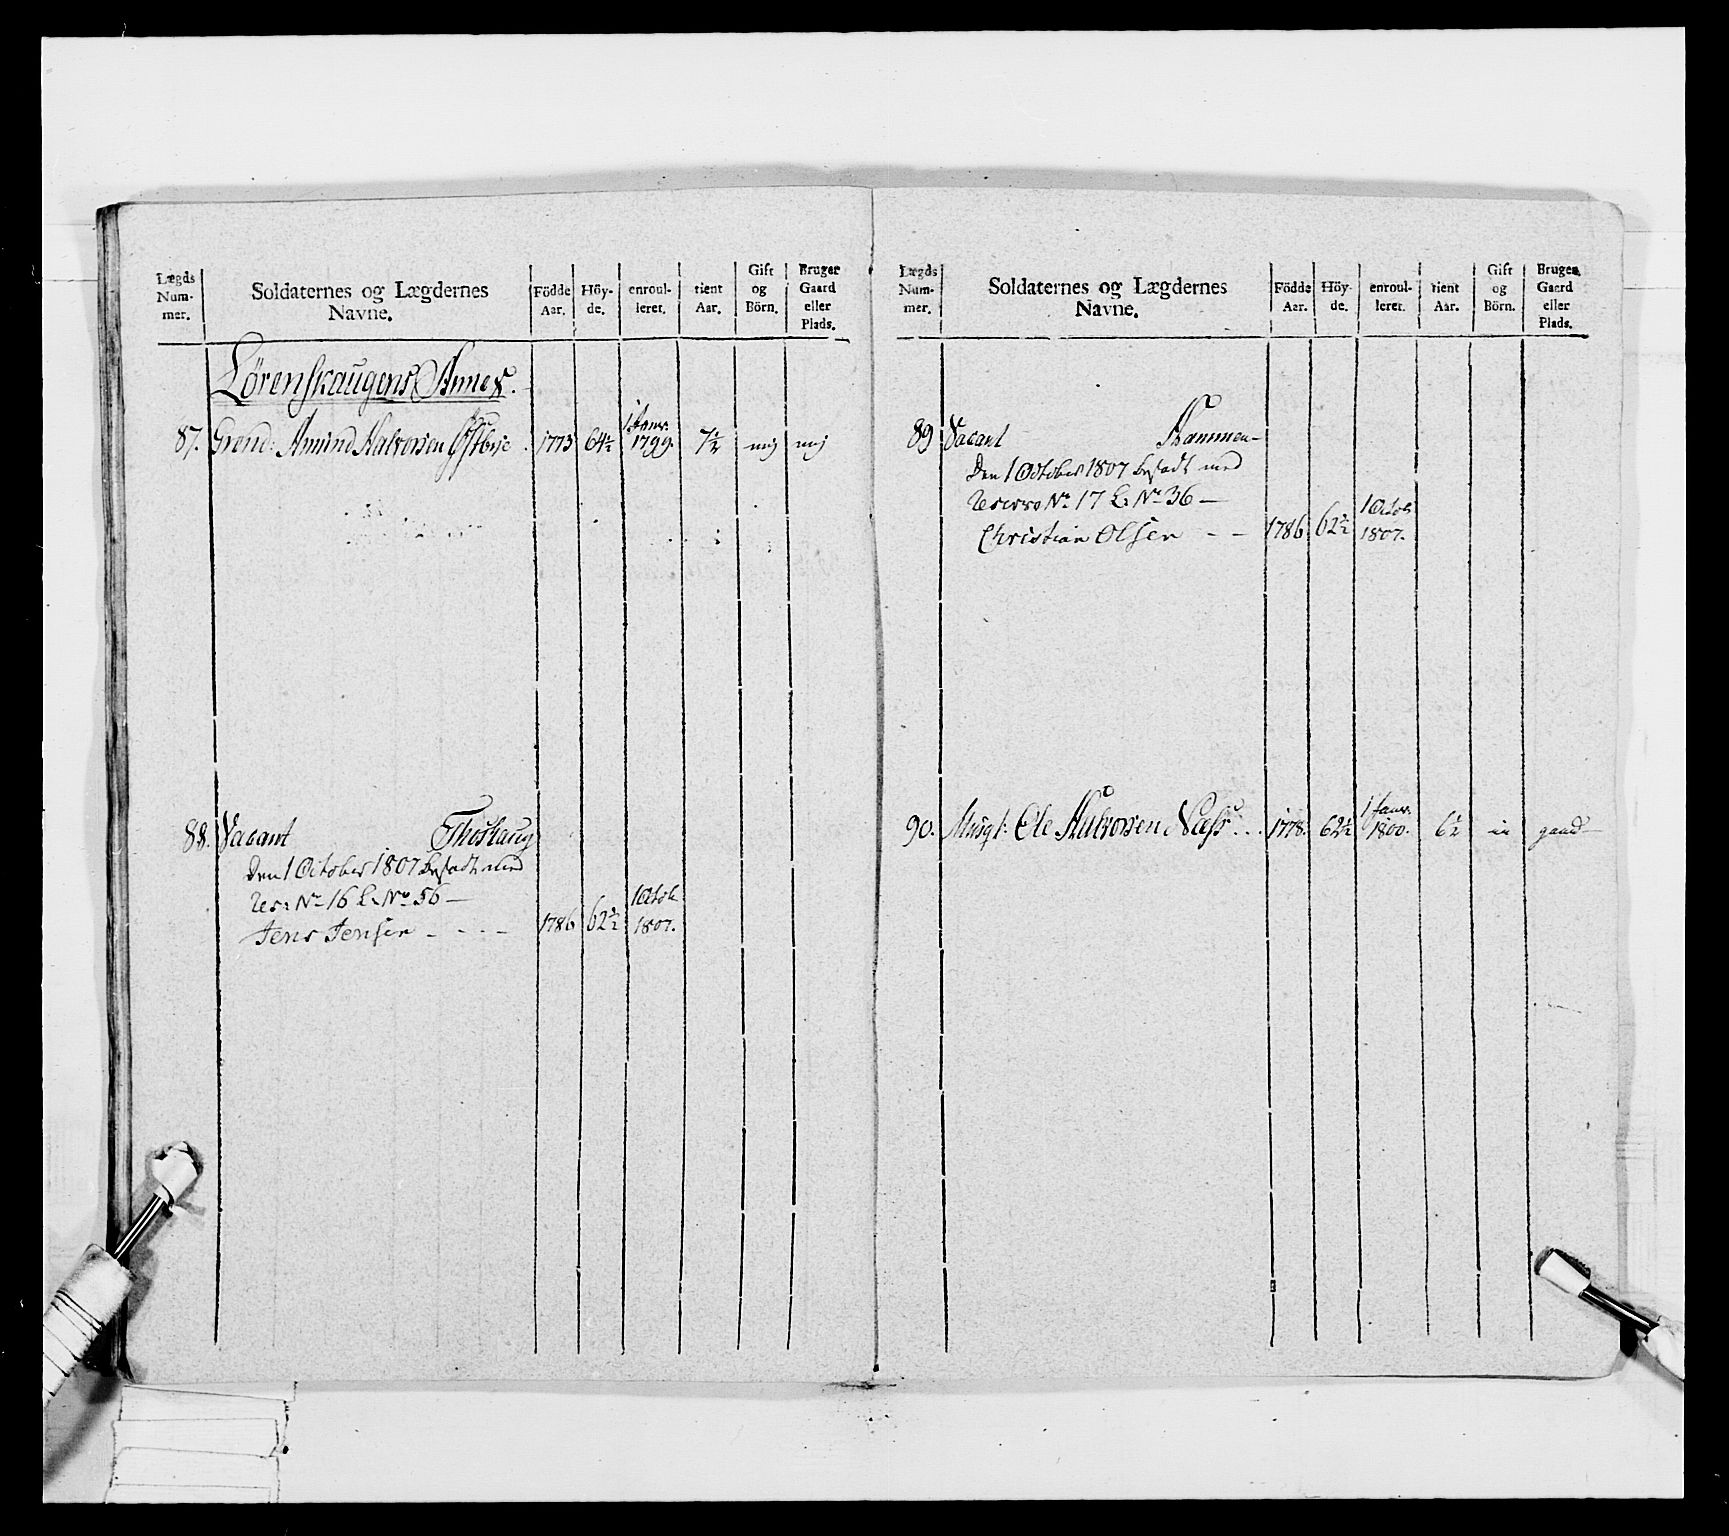 Lægds Num- mer.
Soldaternes og Lægdernes Navne.
Födde Aar.
Höy- de.
enroul- leret.
tient Aar.
Gift og Börn.
Bruger Gaard eller Plads.
Lörenskaugens Annex.
87. Grend: Amund Halvorsen Östbye . 1773 64½ 1 Janr. 1799. 7½ nej nej
88. Vacant Thoshaug
Den 1 October 1807 besadt med
Res: No 16 L. No 56 —
Jens Jensen - - - - 1786 62½ 1 Octob. 1807.
Lægds Num- mer.
Soldaternes og Lægdernes Navne.
Födde Aar.
Höy- de.
enroul- leret.
tient Aar.
Gift og Börn.
Bruger Gaard eller Plads.
89 Vacant Hammer-
Den 1 October 1807 besadt med
Reserve No 17 L. No 36 —
Christian Olsen - - 1786 62½ 1 Octob. 1807.
90. Musqt: Ole Halvorsen Næss . . . 1778. 62½ 1 Janr. 1800. 6½ in gaard-